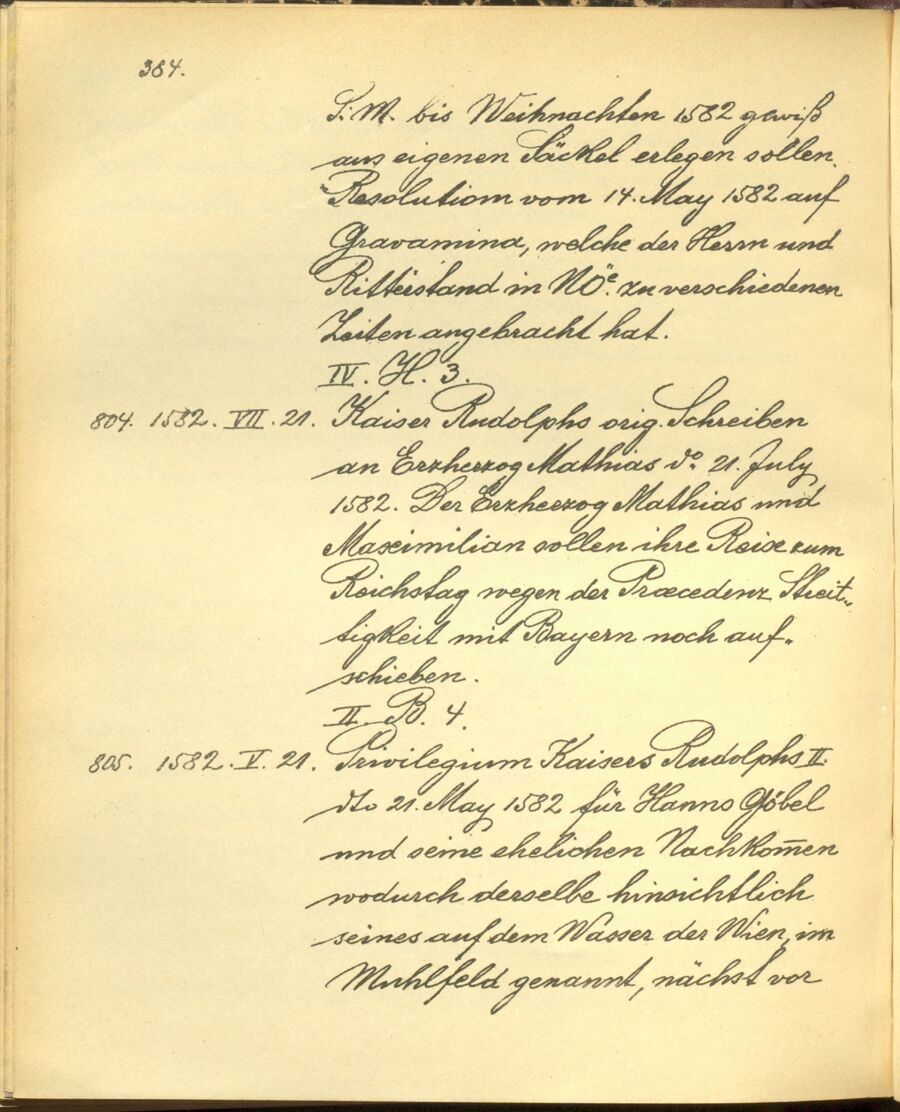 384.
S. M. bis Weihnachten 1582 gewiß
aus eigenen Säckel erlegen sollen.
Resolution vom 14. May 1582 auf
Gravamina, welche der Herrn und
Ritterstand in NÖe. zu verschiedenen
Zeiten angebracht hat.
IV. H. 3.
804. 1582. VII. 21. Kaiser Rudolphs orig. Schreiben
an Erzherzog Mathias do. 21. July
1582. Der Erzherzog Mathias und
Maximilian sollen ihre Reise zum
Reichstag wegen der Præcedenz Streit-
tigkeit mit Bayern noch auf-
schieben.
II. B. 4.
805. 1582. V. 21. Privilegium Kaisers Rudolphs II.
dto 21. May 1582 für Hanns Göbel
und seine ehelichen Nachkom̅en
wodurch derselbe hinsichtlich
seines auf dem Wasser der Wien, im
Muhlfeld genannt, nächst vor